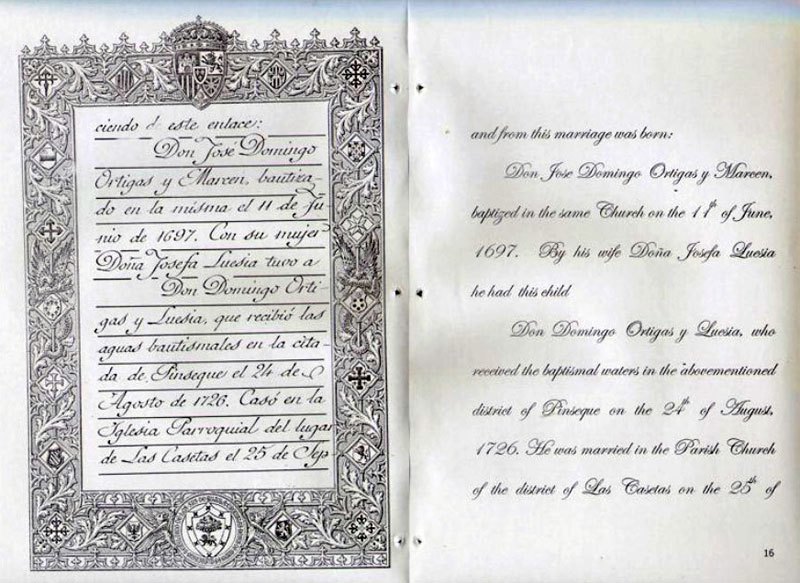 ciendo de este enlace:
Don José Domingo
Ortigas y Marcen, bautiza-
do en la misma el 11 de Ju-
nio de 1697. Con su mujer
Doña Josefa Luesia tuvo a
Don Domingo Orti-
gas y Luesia, que recibió las
aguas bautismales en la cita-
da de Pinseque el 24 de
Agosto de 1726. Casó en la
Iglesia Parroquial del lugar
de Las Casetas el 25 de Sep
and from this marriage was born:
Don Jose Domingo Ortigas y Marcen,
baptized in the same Church on the 11th of June,
1697. By his wife Doña Josefa Luesia
he had this child
Don Domingo Ortigas y Luesia, who
received the baptismal waters in the abovementioned
district of Pinseque on the 24th of August,
1726. He was married in the Parish Church
of the district of Las Casetas on the 25th of
16